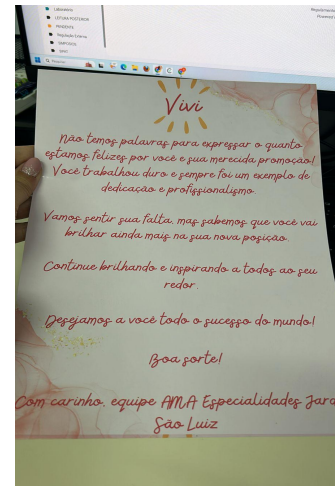 Laboratório
LEITURA POSTERIOR
PENDENTE
Regulação Externa
SIMPÓSIOS
Vivi
Não temos palavras para expressar o quanto
estamos felizes por você e sua merecida promoção!
Você trabalhou duro e sempre foi um exemplo de
dedicação e profissionalismo.
Vamos sentir sua falta, mas sabemos que você vai
brilhar ainda mais na sua nova posição.
Continue brilhando e inspirando a todos ao seu
redor.
Desejamos a você todo o sucesso do mundo!
Boa sorte!
Com carinho, equipe AMA Especialidades Jard
São Luiz